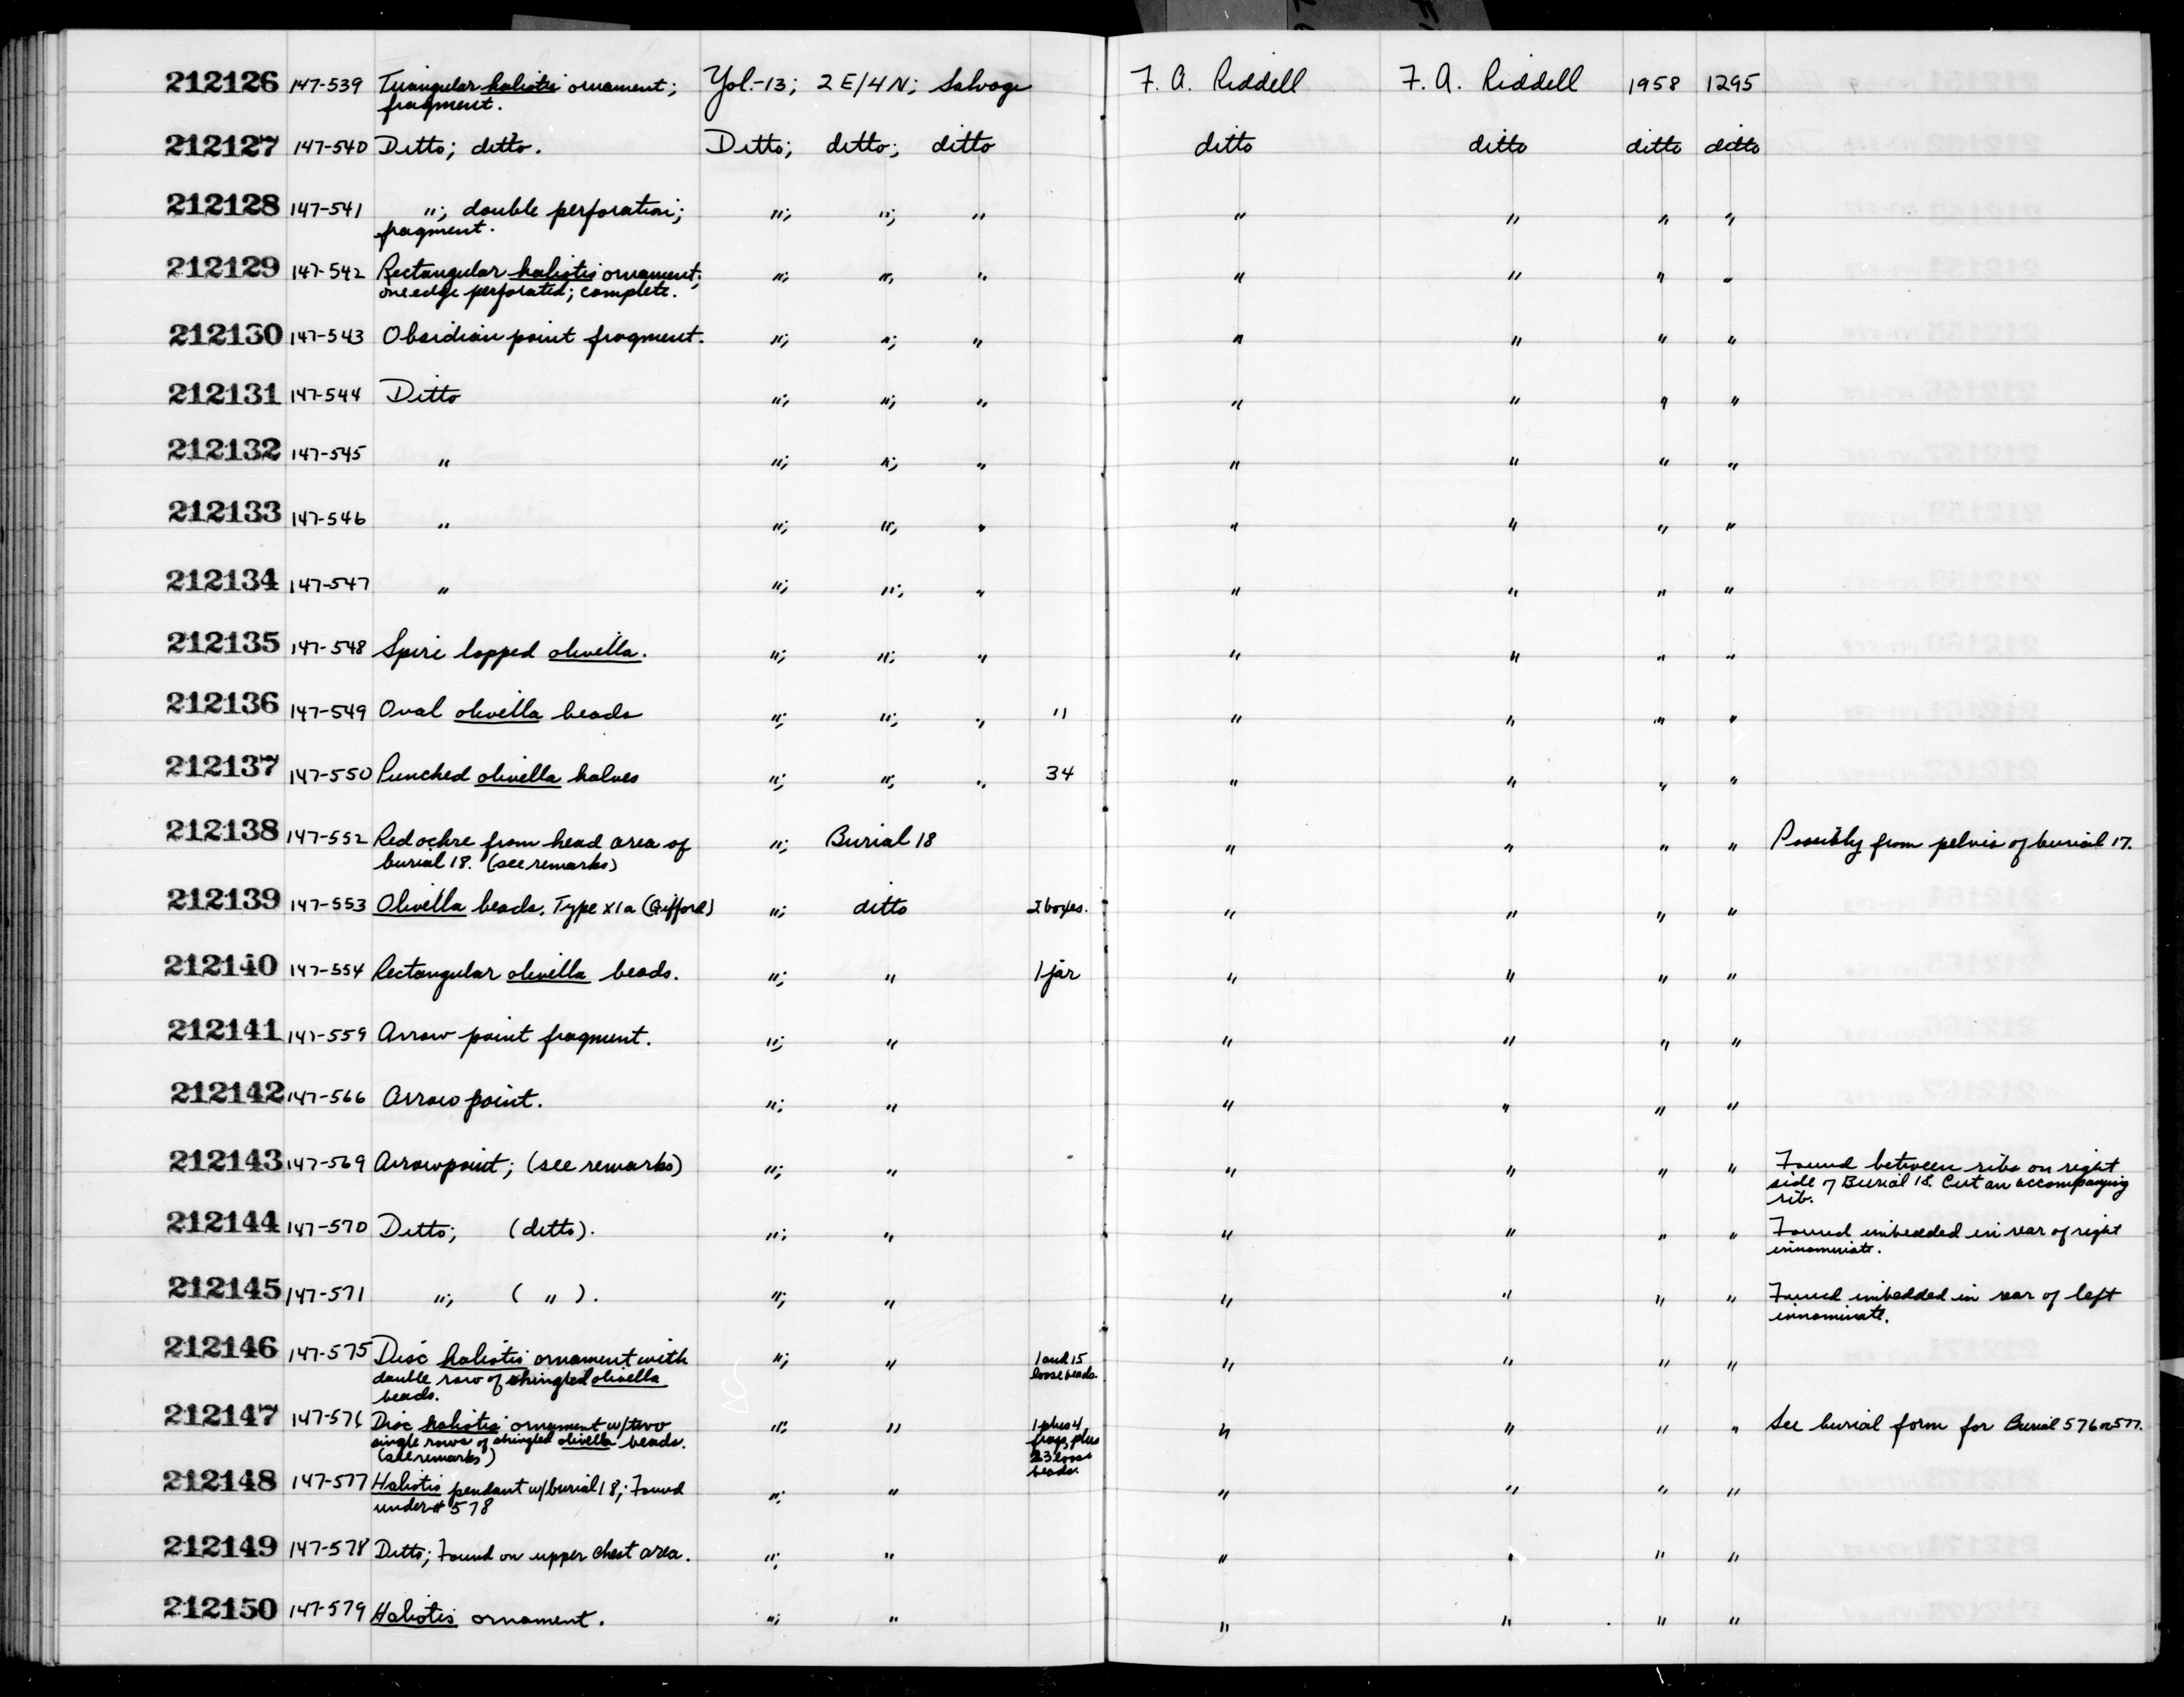 212126 147-539 Triangular haliotis ornament; Yol.-13; 2E/4N; Salvage F. A. Riddell F. A. Riddell 1958 1295
fragment.
212127 147-540 Ditto; ditto. Ditto; ditto; ditto ditto ditto ditto ditto
212128 147-541 "; double perforation; "; "; " " " " "
fragment.
212129 147-542 Rectangular haliotis ornament; "; "; " " " " "
one edge perforated; complete.
212130 147-543 Obsidian point fragment. "; "; " " " " "
212131 147-544 Ditto "; "; " " " " "
212132 147-545 " "; "; " " " " "
212133 147-546 " "; "; " " " " "
212134 147-547 " "; "; " " " " "
212135 147-548 Spire lopped olivella. "; "; " " " " "
212136 147-549 Oval olivella beads "; "; " 11 " " " "
212137 147-550 Punched olivella halves "; "; " 34 " " " "
212138 147-552 Red ochre from head area of "; Burial 18 " " " " Possibly from pelvis of burial 17.
burial 18. (see remarks)
212139 147-553 Olivella beads, Type XIa (Gifford) "; ditto 2 boxes. " " " "
212140 147-554 Rectangular olivella beads. "; " 1 jar " " " "
212141 147-559 Arrow point fragment. "; " " " " "
212142 147-566 Arrow point. "; " " " " "
212143 147-569 Arrowpoint; (see remarks) "; " " " " " Found between ribs on right
side of Burial 18. Cut an accompanying
rib.
212144 147-570 Ditto; (ditto). "; " " " " " Found imbedded in rear of right
innominate.
212145 147-571 "; ( " ). "; " " " " " Found imbedded in rear of left
innominate.
212146 147-575 Disc haliotis ornament with "; " 1 and 15 " " " "
double row of shingled olivella loose beads.
beads.
212147 147-576 Disc haliotis ornament w/two "; " 1 plus 4 " " " " See burial form for Burial 576 or 577.
single rows of shingled olivella beads. frags, plus
(see remarks) 23 loose
beads.
212148 147-577 Haliotis pendant w/burial 18; Found "; " " " " "
under # 578
212149 147-578 Ditto; Found on upper chest area. "; " " " " "
212150 147-579 Haliotis ornament. "; " " " " "